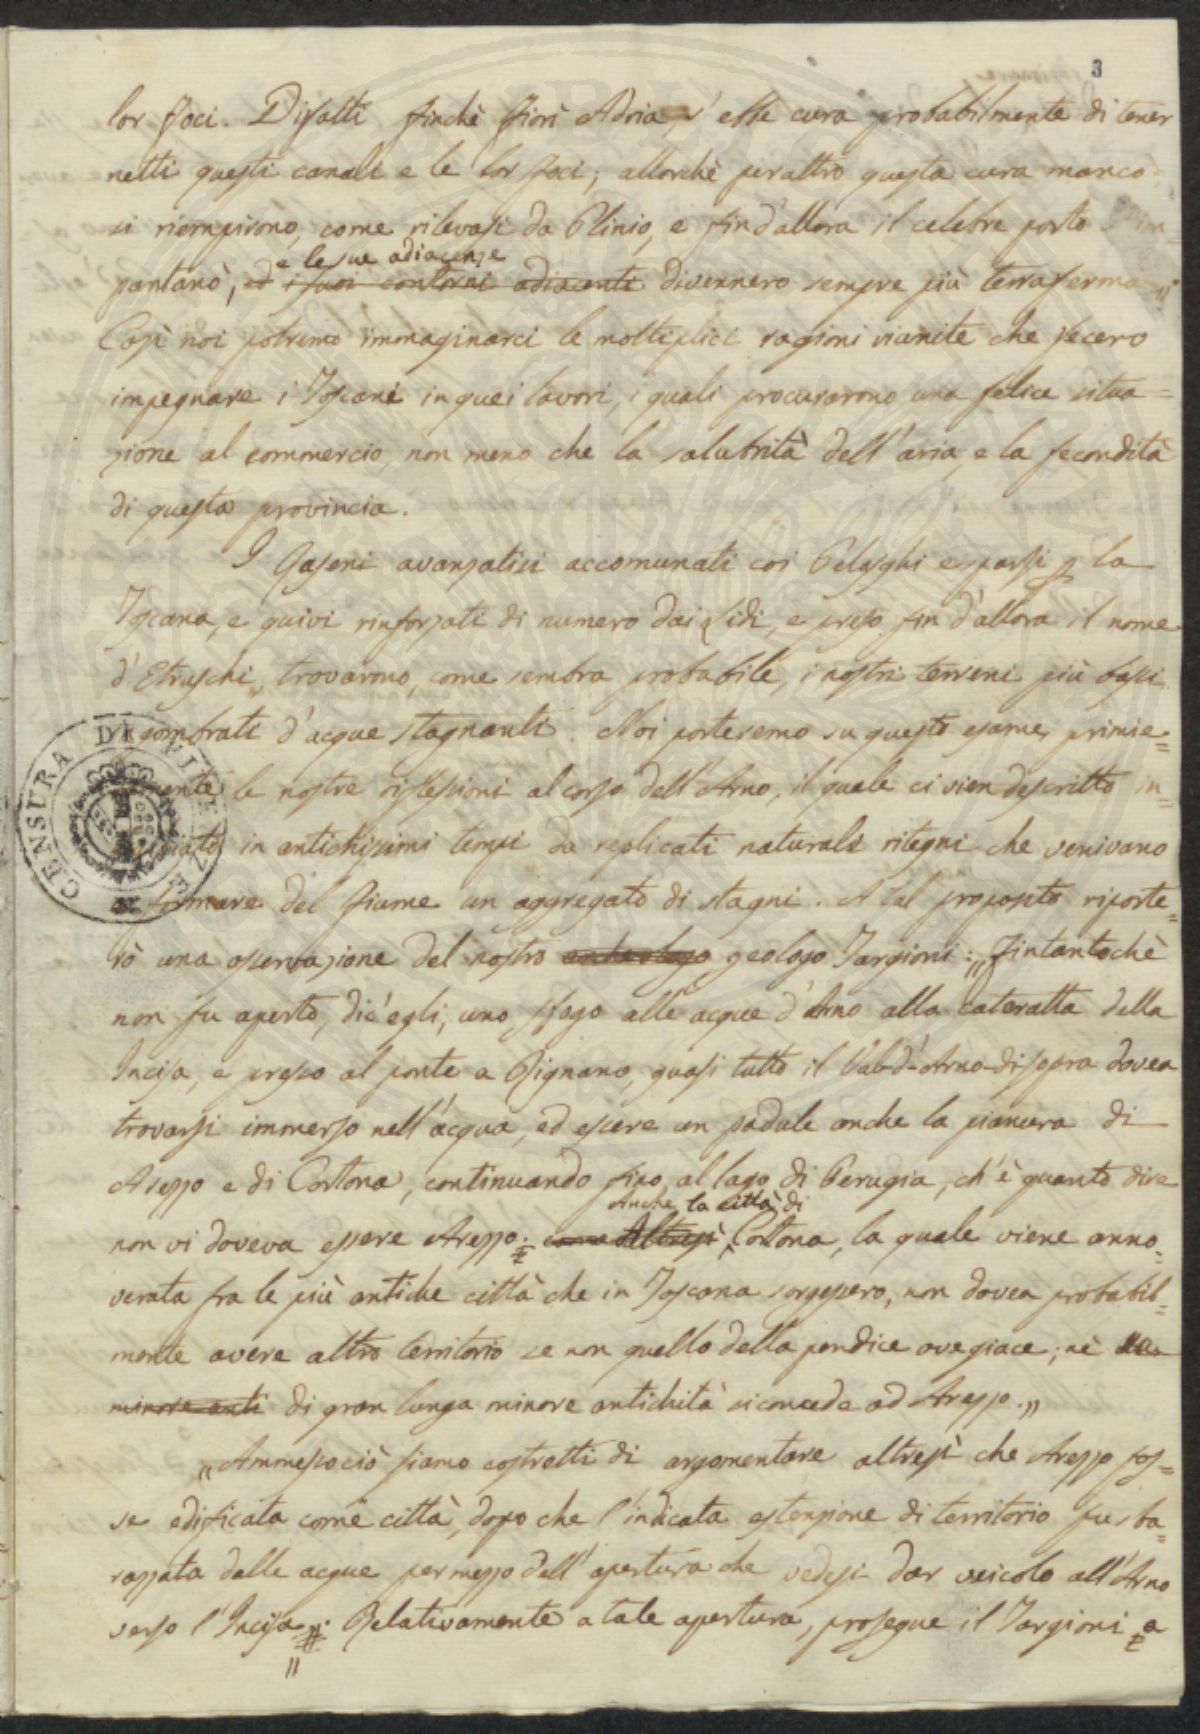 3
lor foci. Difatti finchè fiorì Adria, s'ebbe cura probabilmente di tener
netti questi canali e le lor foci; allorchè peraltro questa cura manco
si riempirono, come rilevasi da Plinio, e fin d'allora il celebre porto im=
e le sue adiacenze
pantanò, ed i suoi contorni adiacenti divennero sempre più terraferma „
Così noi potremo immaginarci le moltiplici ragioni riunite che fecero
impegnare i Toscani in quei lavori, i quali procurarono una felice situa=
zione al commercio, non meno che la salubrità dell'aria e la fecondità
di questa provincia.
I Raseni avanzatisi accomunati coi Pelasghi e sparsi p la
Toscana, e quivi rinforzati di numero dai lidi, e preso fin d'allora il nome
d'Etruschi, trovarono, come sembra probabile, i nostri terreni più bassi
ingombrati d'acque stagnanti. Noi porteremo su questo esame, primie=
ramente le nostre riflessioni al corso dell'Arno, il quale ci vien descritto in=
in antichissimi tempi da replicati naturali ritegni che venivano
a formare del fiume un aggregato di stagni. A tal proposito riporte=
rò una osservazione del nostro archeologo geologo Targioni: „ Fintantochè
non fu aperto, dic'egli, uno sfogo alle acque d'Arno alla cateratta della
Incisa, e presso al ponte a Rignano, quasi tutto il Val-d'Arno-disopra dovea
trovarsi immerso nell'acqua, ed essere un padule anche la pianura di
Arezzo e di Cortona, continuando fino al lago di Perugia, ch'è quanto dire
Anche la città di
non vi doveva essere Arezzo. come Altresì Cortona, la quale viene anno=
verata fra le più antiche città che in Toscana sorgessero, non dovea probabil=
mente avere altro territorio se non quello della pendice ove giace; nè
minore anti di gran lunga minore antichità si concede ad Arezzo. „
„ Ammesso ciò siamo costretti di argomentare altresì che Arezzo fos=
se edificata come città, dopo che l'indicata estensione di territorio fu sba=
razzata dalle acque per mezzo dell'apertura che vedesi dar veicolo all'Arno
verso l'Incisa „. Relativamente a tale apertura, prosegue il Targioni a
CENSURA DI FIRENZE